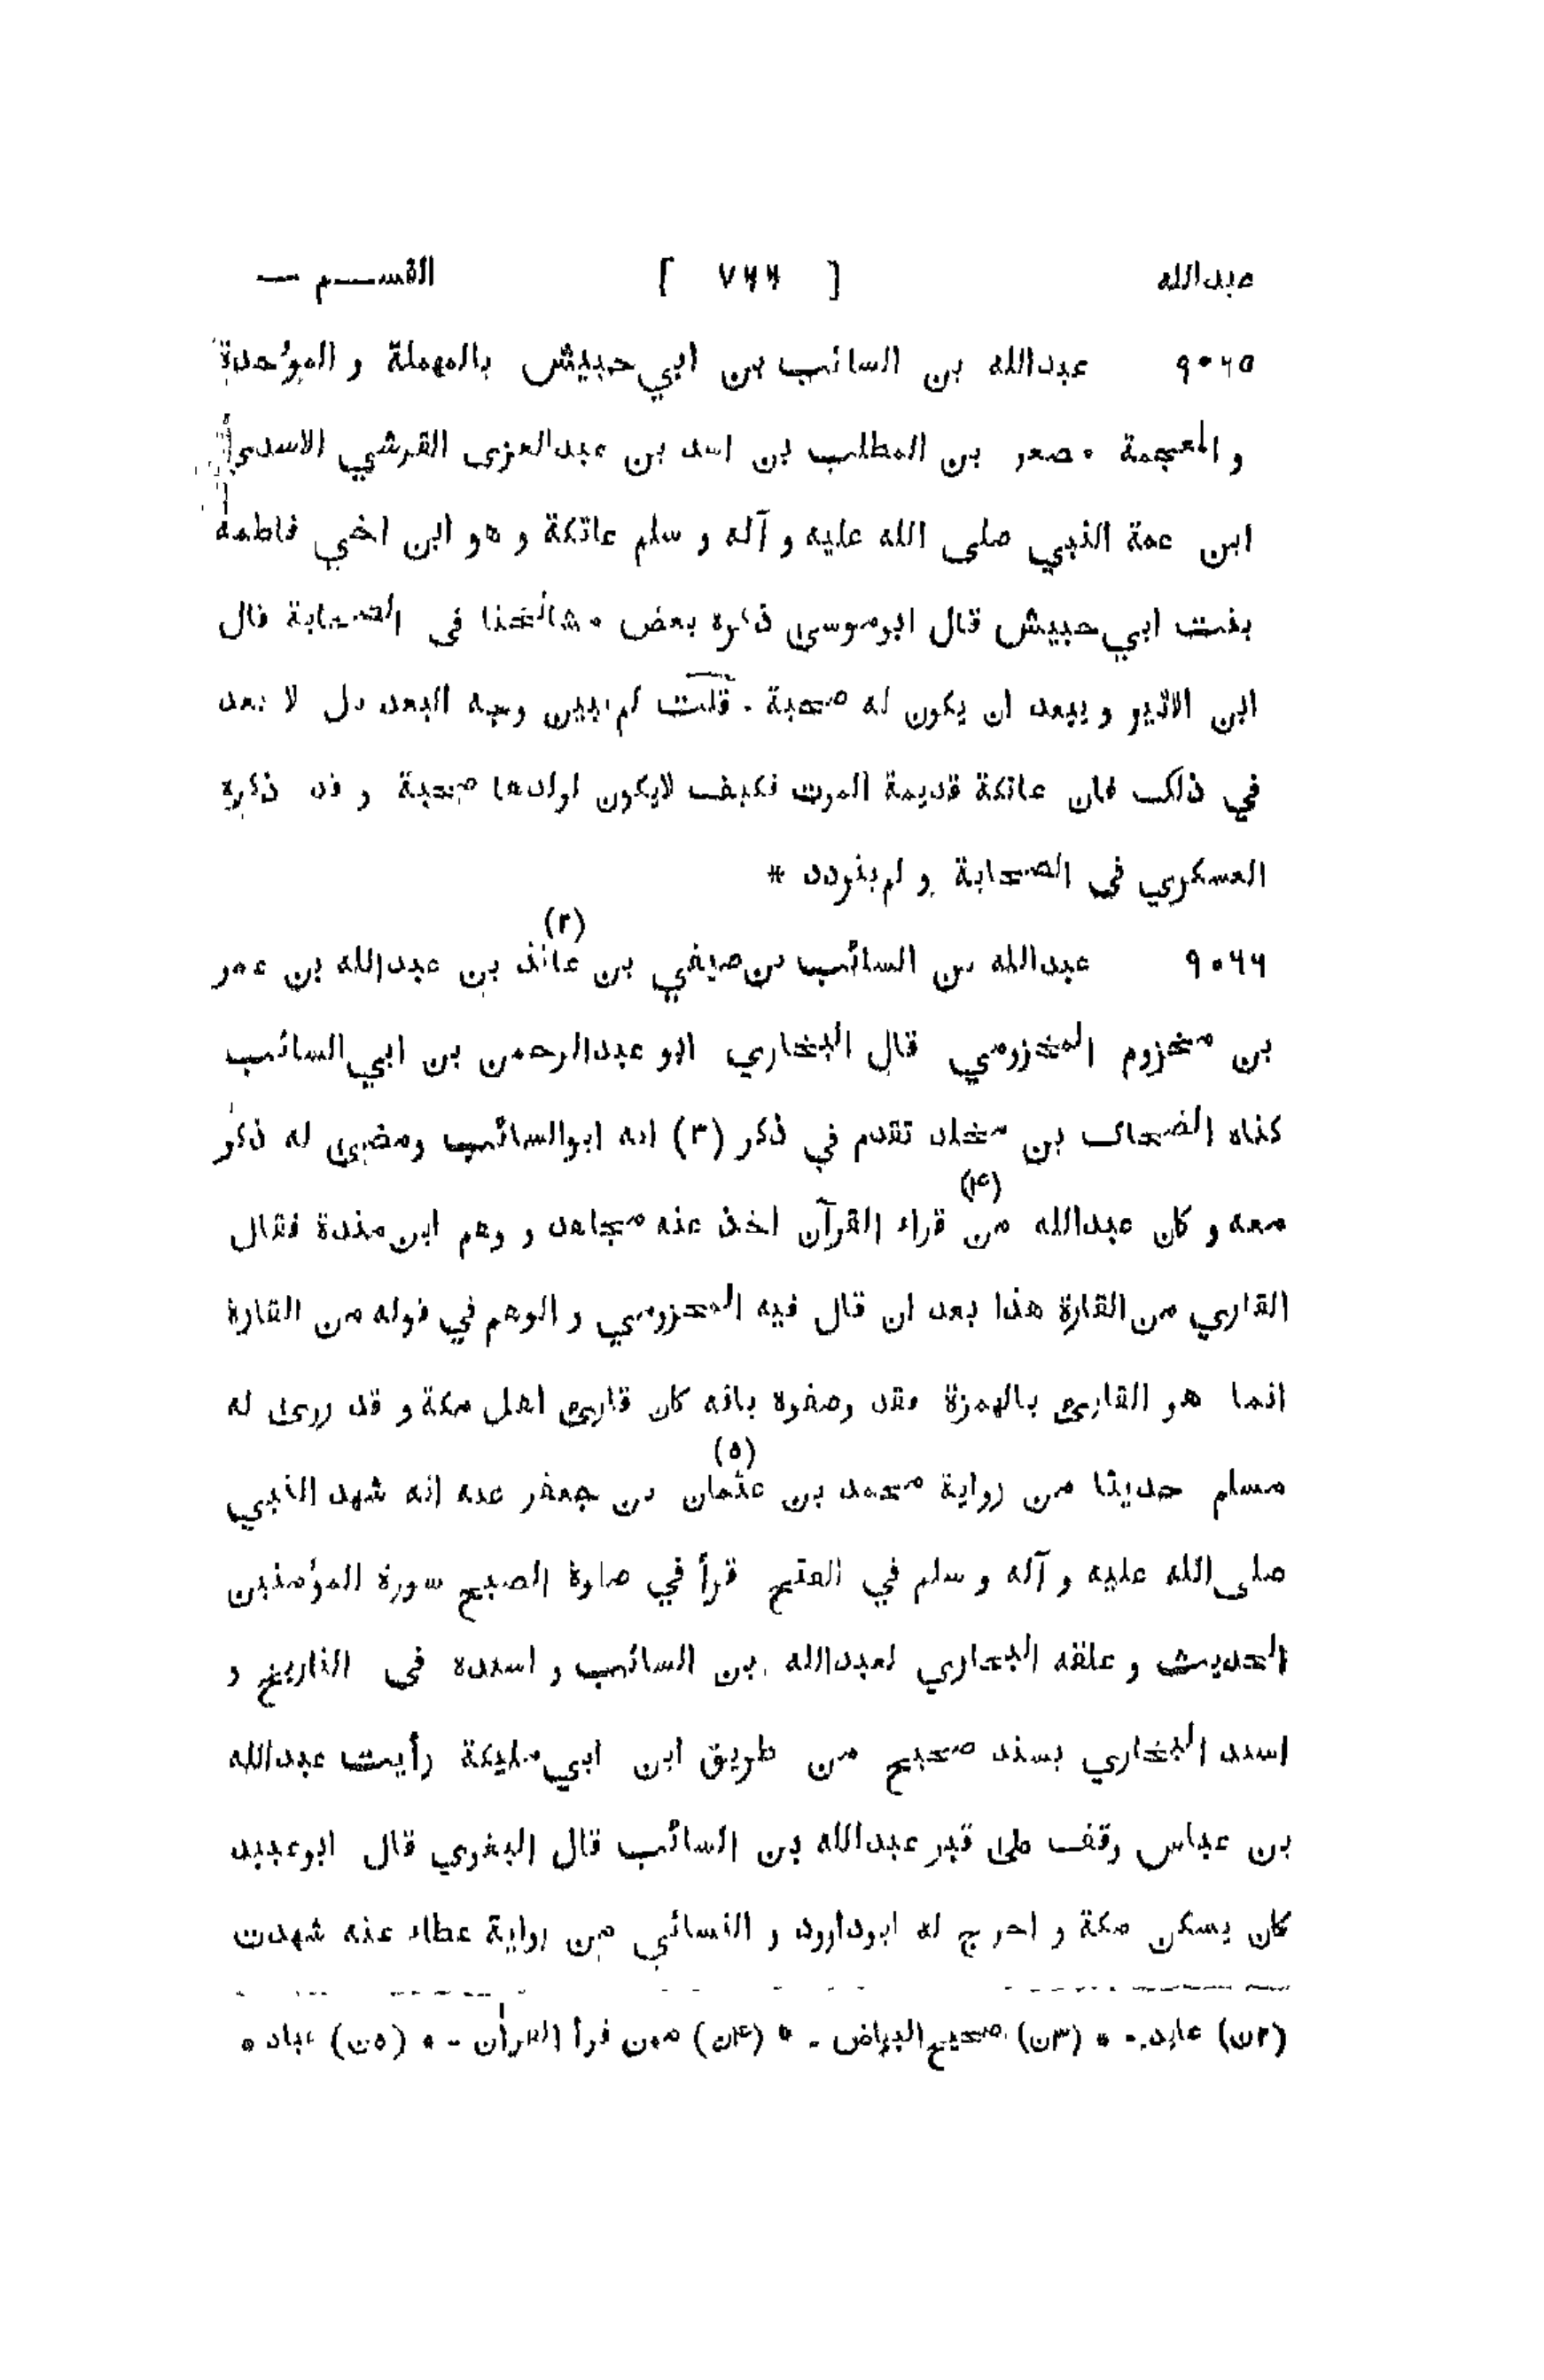 عبدالله [ ٧٦٦ ] القســـم —
٩٠٦٥ عبدالله بن السائب بن ابي حبيش بالمهملة و الموُحدة
و المعجمة مصعر بن المطلب بن اسد بن عبدالعزى القرشي الاسدي
ابن عمة النبي صلى الله عليه و آله و سلم عاتكة و هو ابن اخي فاطمة
بنت ابي حبيش قال ابوموسى ذكره بعض مشائخنا في الصحابة قال
ابن الاثير و يبعد ان يكون له صحبة . قلت لم يبين وجه البعد بل لا بعد
في ذلك فان عاتكة قديمة الموت فكيف لايكون لولدها صحبة و قد ذكره
العسكري في الصحابة و لم يتردد *
٩٠٦٦ عبدالله بن السائب بن صيفي بن عائذ (٢) بن عبدالله بن عمر
بن مخزوم المخزومي قال البخاري ابو عبدالرحمن بن ابي السائب
كناه الضحاك بن مخلد تقدم في ذكر (٣) انه ابوالسائب ومضى له ذكر
معه و كان عبدالله من (۴) قراء القرآن اخذ عنه مجاهد و وهم ابن مندة فقال
القاري من القارة هذا بعد ان قال فيه المخزومي و الوهم في قوله من القارة
انما هو القارئ بالهمزة فقد وصفوه بانه كان قارئ اهل مكة و قد روى له
مسلم حديثا من رواية محمد بن عثمان (٥) بن جعفر عنه انه شهد النبي
صلى الله عليه و آله و سلم في الفتح قرأ في صلوة الصبح سورة المؤمنين
الحديث و علقه البخاري لعبدالله بن السائب و اسنده في التاريخ و
اسند البخاري بسند صحيح من طريق ابن ابي مليكة رأيت عبدالله
بن عباس وقف على قبر عبدالله بن السائب قال البغوي قال ابوعبيد
كان يسكن مكة و اخرج له ابوداوود و النسائي من رواية عطاء عنه شهدت
(٢ن) عابد - * (٣ن) صحيح البياض - * (۴ن) ممن قرأ القرآن - * (٥ن) عباد *